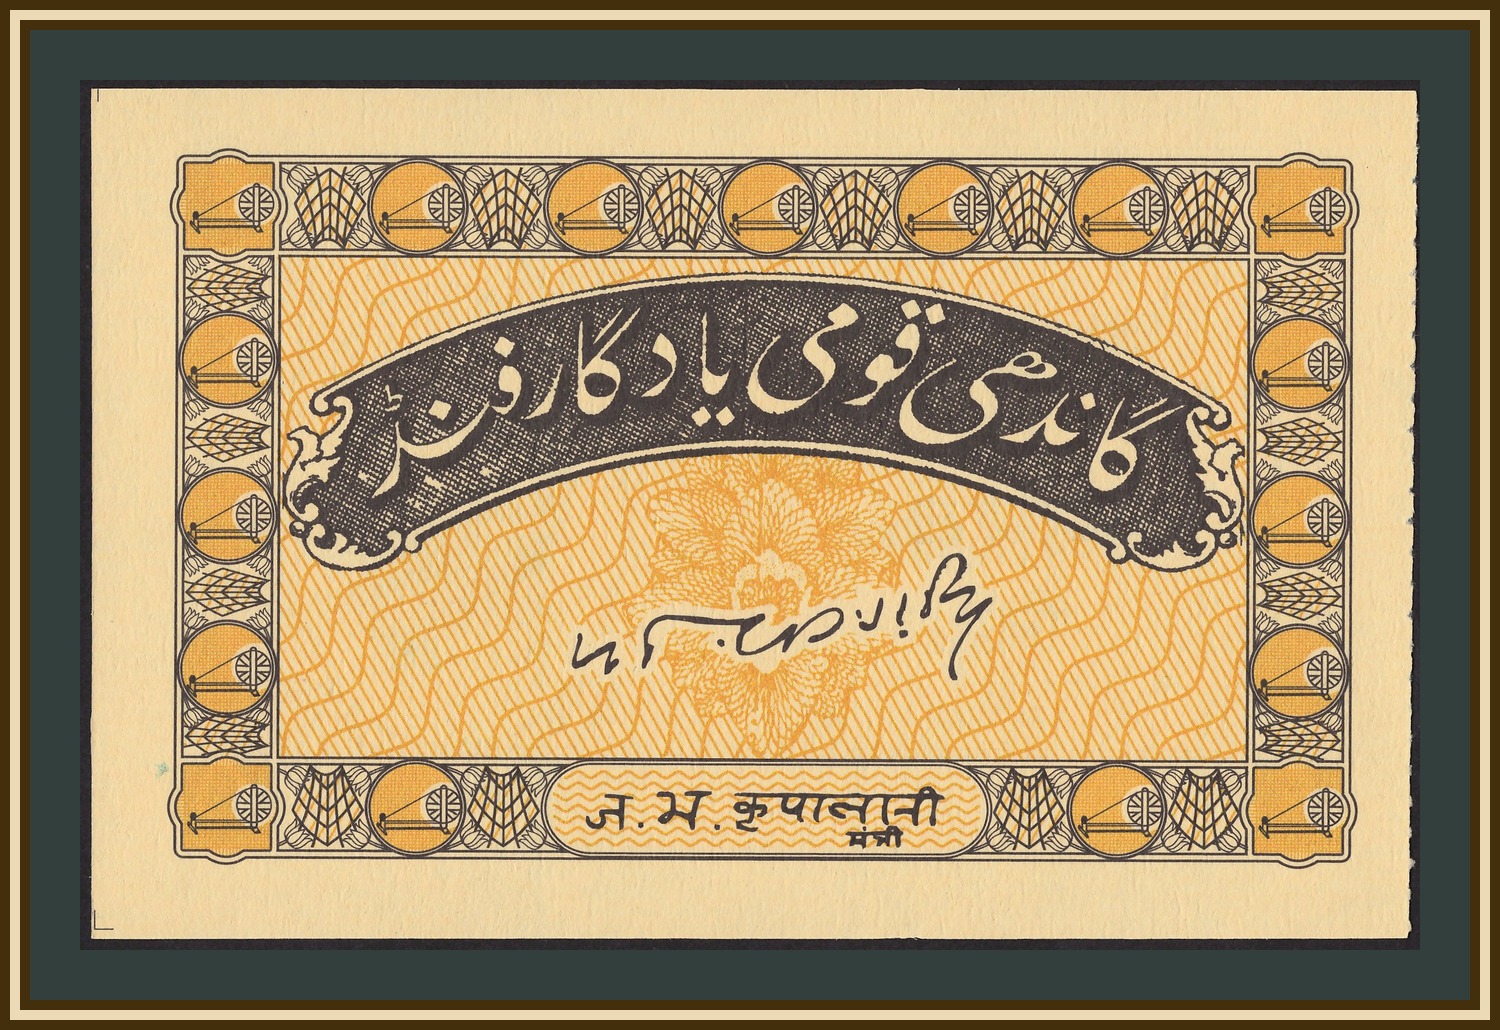 گاندھی قومی یادگار فنڈ
ज. भ. कृपालानी
मंत्री